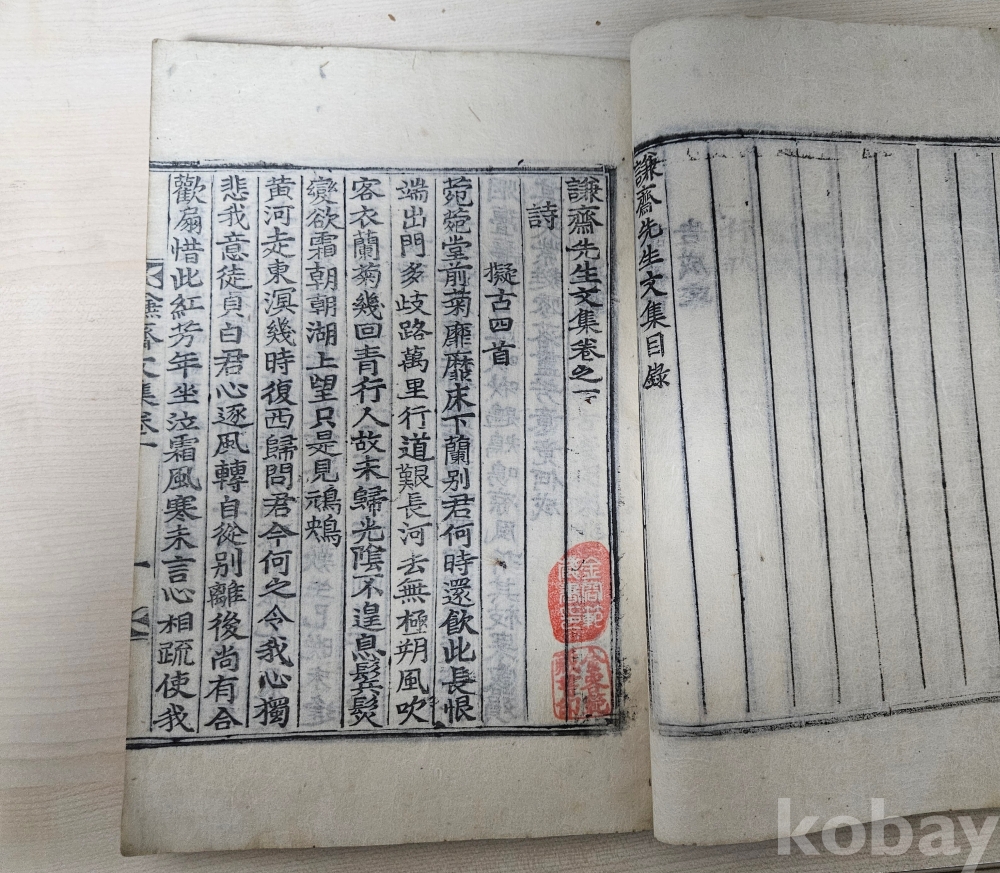 謙齋先生文集目錄
謙齋先生文集卷之一
詩
擬古四首
菀菀堂前菊靡靡床下蘭別君何時還飮此長恨
端出門多歧路萬里行道艱長河去無極朔風吹
客衣蘭菊幾回靑行人故未歸光陰不遑息鬂髮
變欲霜朝朝湖上望只是見鴻鵊
黃河走東溟幾時復西歸問君今何之令我心獨
悲我意徒貞白君心逐風轉自從別離後尙有合
歡扇惜此紅芳年坐泣霜風寒未言心相疏使我
謙齋文集卷一
一
kobay